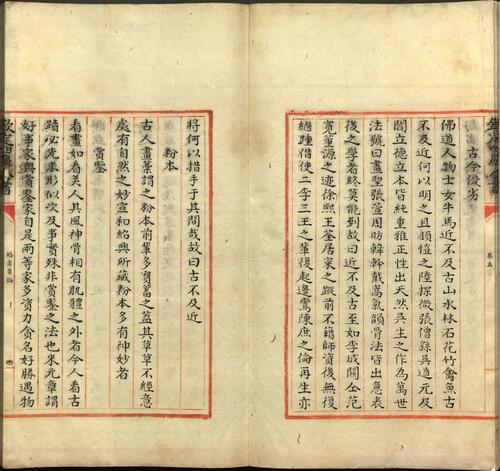 古今優劣
佛道人物士女牛馬近不及古山水林石花竹禽魚古
不及近何以明之且顧愷之陸探微張僧繇吳道元及
閻立德立本皆純重雅正性出天然吳生之作為萬世
法號曰畫聖張萱周昉韓幹戴嵩氣韻骨法皆出意表
後之學者終莫能到故曰近不及古至如李成關仝范
寛董源之迹徐熙王筌居寀之蹤前不籍師資後無復
繼踵借使二李三王之輩復起邊鸞陳庶之倫再生亦
將何以措手于其間哉故曰古不及近
粉本
古人畫藁謂之粉本前輩多寳蓄之葢其草草不經意
處有自然之妙宣和紹興所藏粉本多有神妙者
賞鑒
看畫如看美人其風神骨相有肌體之外者今人看古
蹟必先求形似次及事實殊非賞鑒之法也米元章謂
好事家與賞鑒家自是兩等家多資力貪名好勝遇物
欽定四庫全書
格古要論
卷五